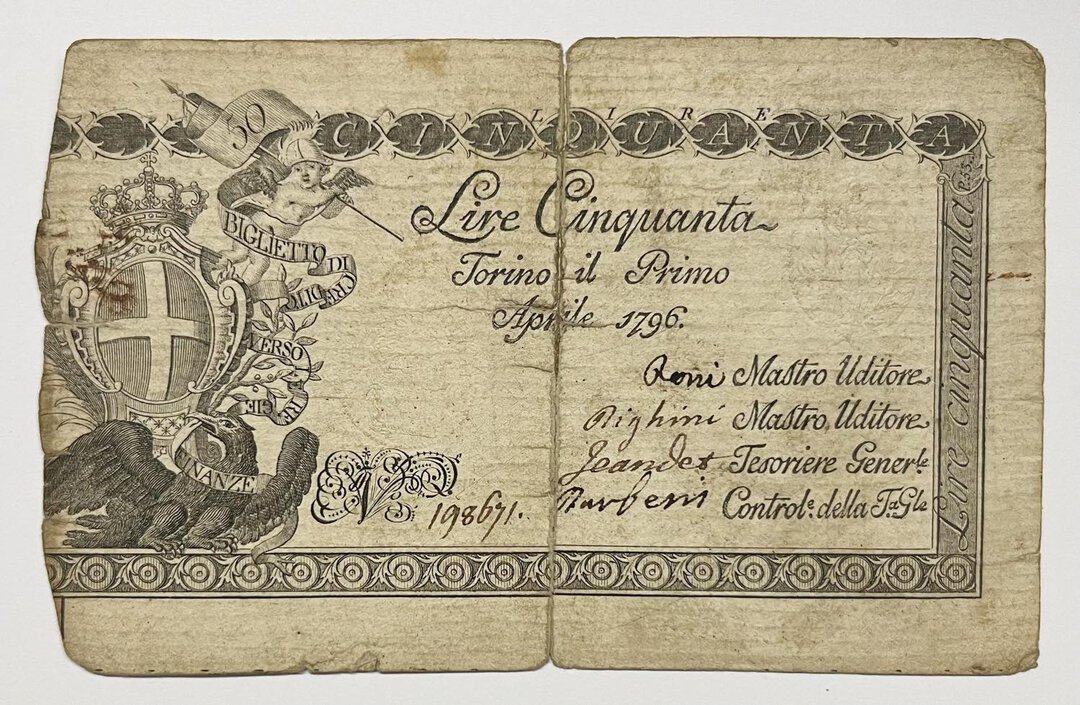 50
LIRE
CINQUANTA
BIGLIETTO DI CREDITO VERSO LE REGIE FINANZE
Lire Cinquanta
Torino il Primo
Aprile 1796.
Roni Mastro Uditore
Righini Mastro Uditore
Jeandet Tesoriere Generle
Barberis Controle. della Ta. Gle
No. 198671.
Lire cinquanta